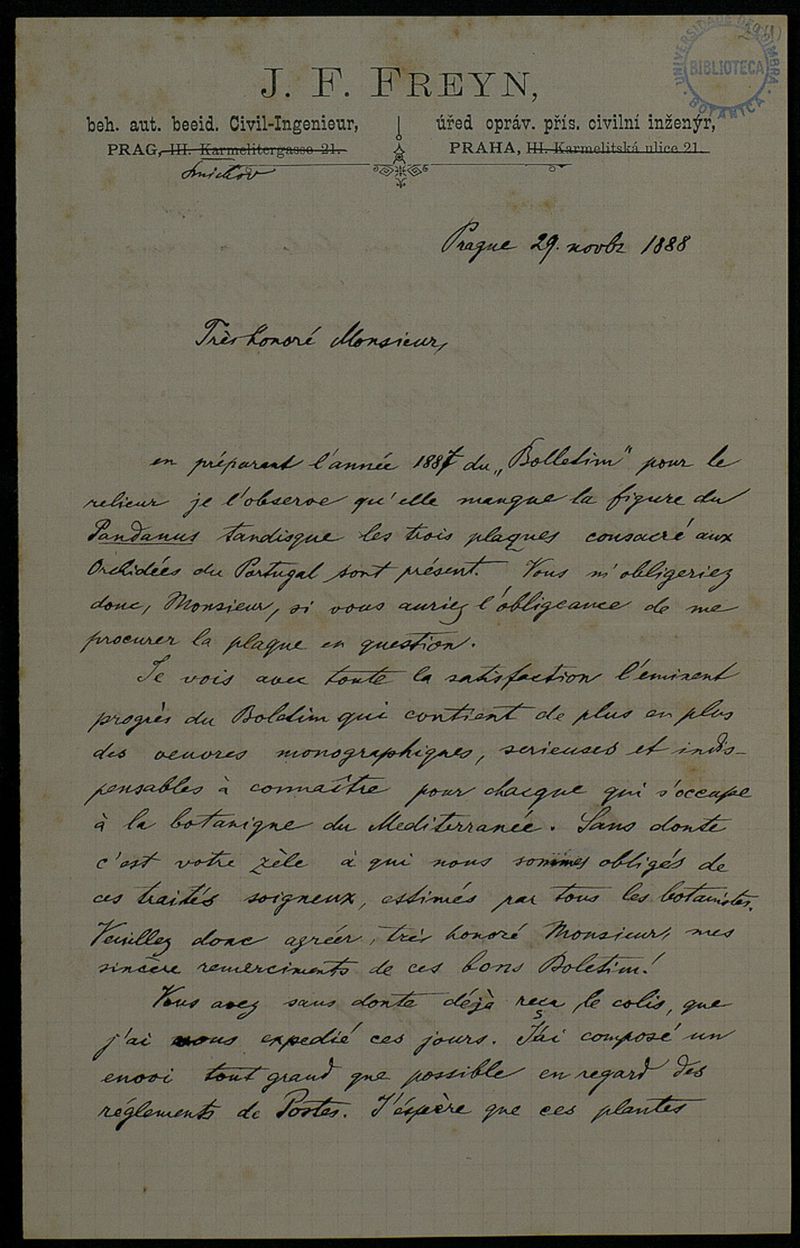 J. F. FREYN,
beh. aut. beeid. Civil-Ingenieur,
PRAG, III. Karmelitergasse 21.
Smichov
úřed opráv. přís. civilní inženýr,
PRAHA, III. Karmelitská ulice 21.
UNIVERSIDADE DE COIMBRA
BIBLIOTECA
BOTANICA
Prague 29. novbr 1888
Très honoré Monsieur,
en préparant l'année 1887 du „Bolletim" pour le
relieur je l'observe qu'elle manque la figure du
Pandanus tandisque les trois plaques consacré aux
Orchidées du Portugal sont présent. Vous m'obligeriez
donc, Monsieur, si vous auriez l'obligeance de me
procurer la plaque en question.
Je vois avec toute la satisfaction l'eminent
progrès du Boletim qui contient de plus en plus
des oeuvres monographiques, serieuses et indis-
pensables à connaître pour chacque qui s'occupe
à la botanique du Mediterranée. Sans doute
c'est votre zèle à qui nous sommes obligés de
ces traités soigneux, estimés par tous les botanistes.
Veuillez donc agréer, très honoré Monsieur, mes
sincère remerciments de ces bons Boletim!
Vous avez sans doute déjà reçu le colis, que
j'ai vous expedié ces jours. J'ai composé un
envoi tout grand que possible en regard des
réglements de Postes. J'éspère que ces plantes